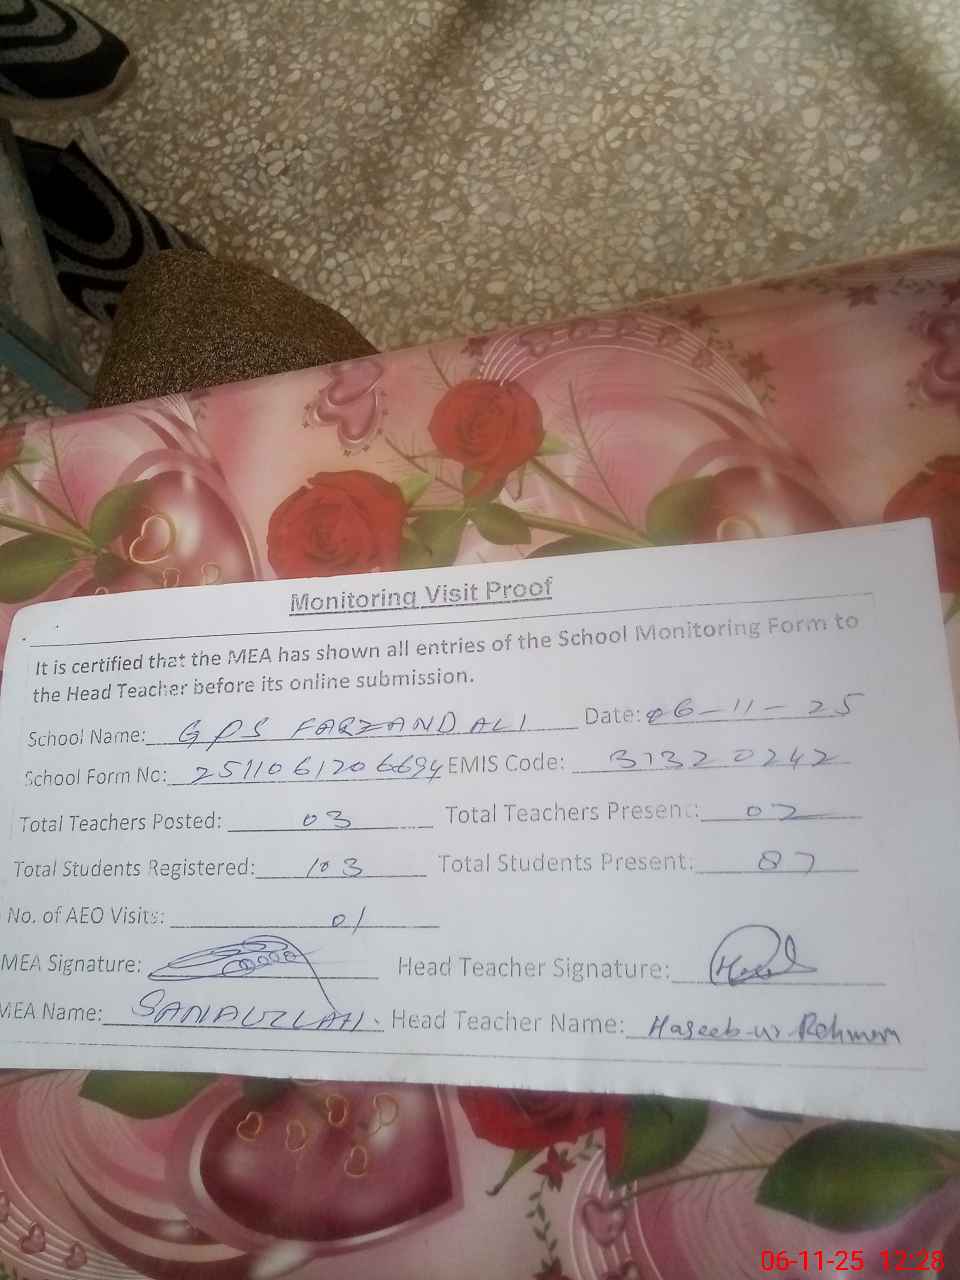 Monitoring Visit Proof
It is certified that the MEA has shown all entries of the School Monitoring Form to
the Head Teacher before its online submission.
School Name: GPS FARZAND ALI Date: 06-11-25
School Form No: 2511061206694 EMIS Code: 31320242
Total Teachers Posted: 03 Total Teachers Present: 02
Total Students Registered: 103 Total Students Present: 87
No. of AEO Visits: 01
MEA Signature: Head Teacher Signature:
MEA Name: SANAULLAH. Head Teacher Name: Haseeb-ur-Rehman
06-11-25 12:28